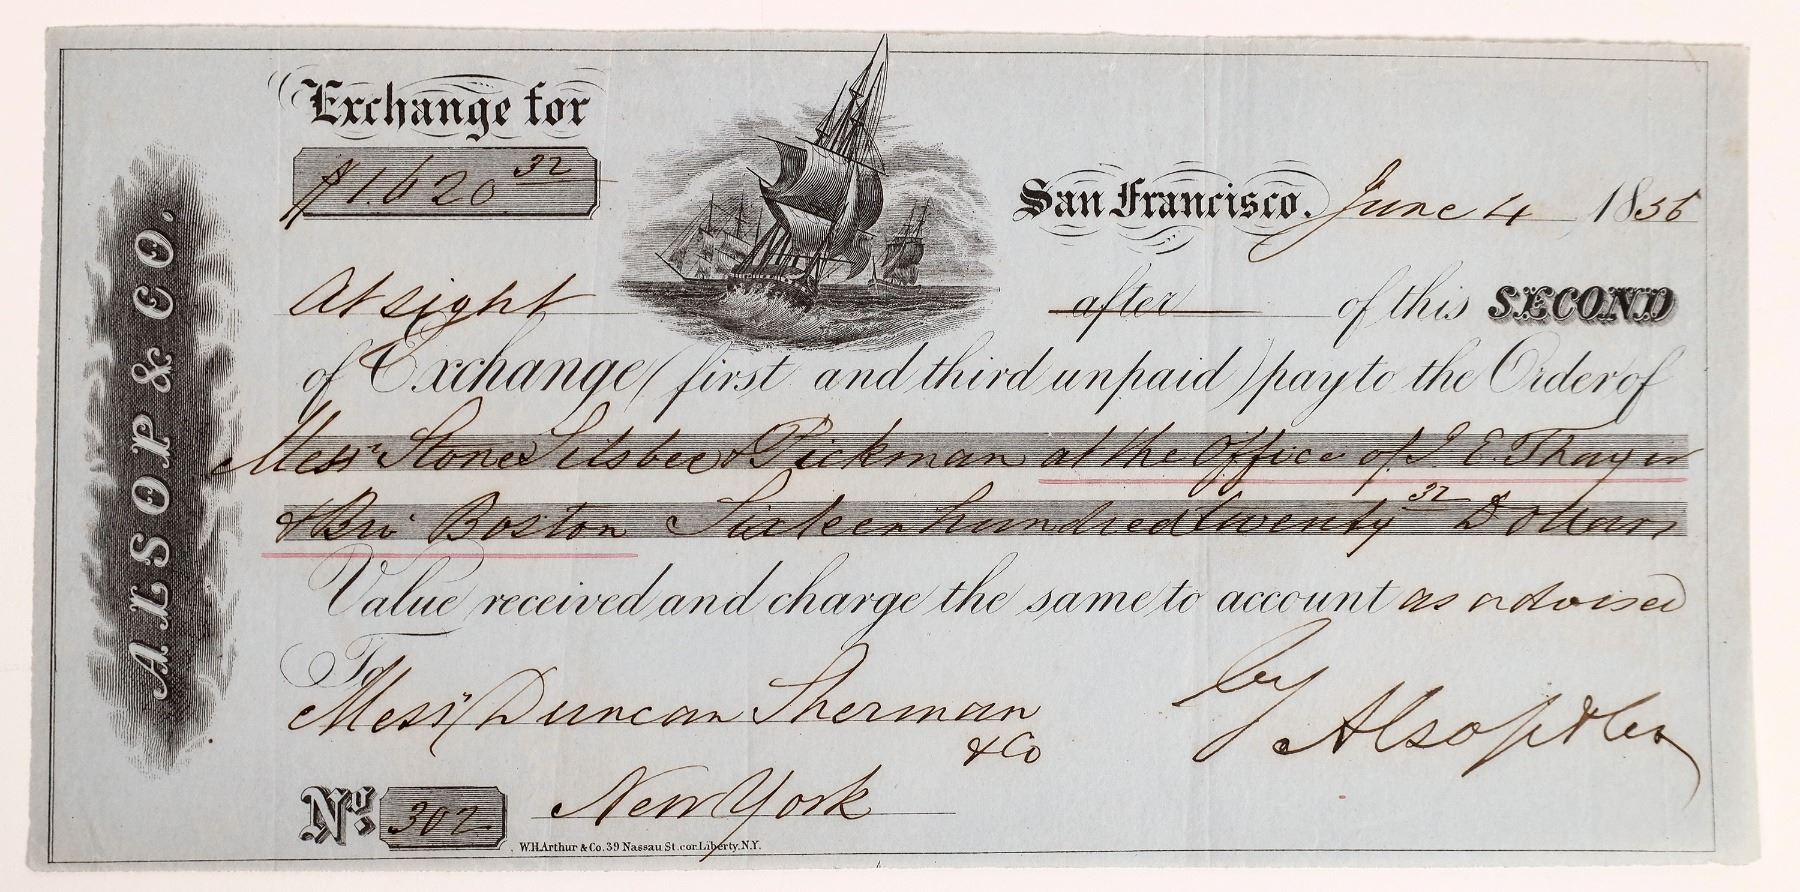 ALSOP & CO.
Exchange for
$1.620 32
San Francisco. June 4 1856
At sight after of this SECOND
of Exchange (first and third unpaid) pay to the Order of
Messrs Stone Silsbee & Pickman at the Office of J. E. Thayer
& Bro Boston Sixteen hundred twenty 32 Dollars
Value received and charge the same to account as advised
To
Messrs Duncan Sherman
& Co
by Alsop & Co
New York
No. 302
W.H.Arthur & Co. 39 Nassau St. cor. Liberty. N.Y.